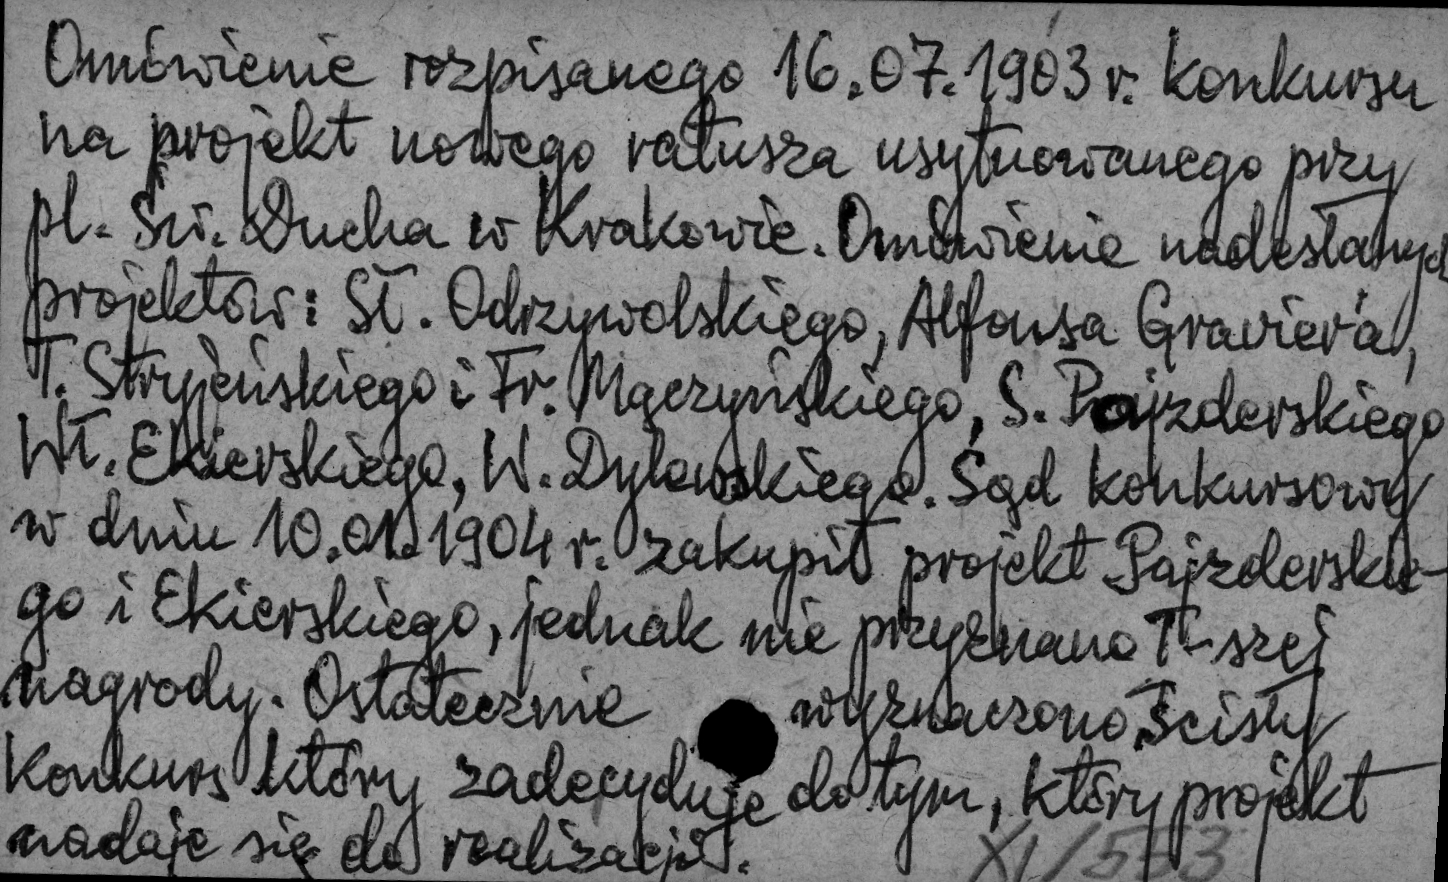 Omówienie rozpisanego 16.07.1903 r. konkursu
na projekt nowego ratusza usytuowanego przy
pl. Św. Ducha w Krakowie. Omówienie nadesłanych
projektów: Sł. Odrzywolskiego, Alfonsa Gravier'a,
T. Stryjeńskiego i Fr. Mączyńskiego, S. Pajzderskiego
Wł. Ekierskiego, W. Dylewskiego. Sąd konkursowy
w dniu 10.01.1904 r. zakupił projekt Pajzderskie-
go i Ekierskiego, jednak nie przyznano I-szej
nagrody. Ostatecznie wyznaczono ścisły
konkurs który zadecyduje do tym, który projekt
nadaje się do realizacji.
XI/553